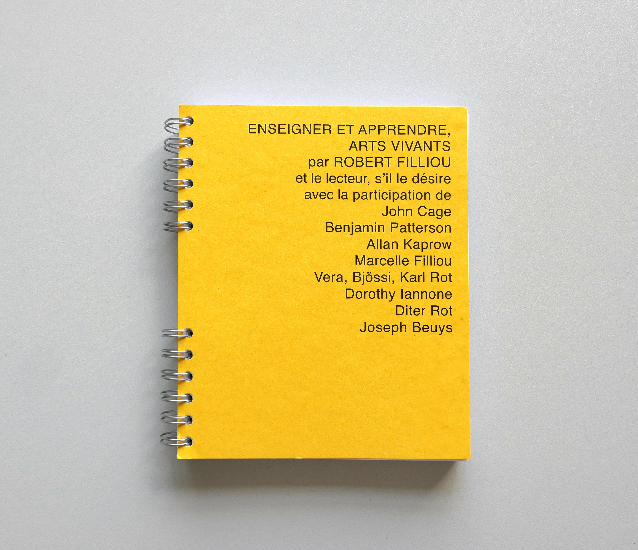 ENSEIGNER ET APPRENDRE,
ARTS VIVANTS
par ROBERT FILLIOU
et le lecteur, s'il le désire
avec la participation de
John Cage
Benjamin Patterson
Allan Kaprow
Marcelle Filliou
Vera, Bjössi, Karl Rot
Dorothy Iannone
Diter Rot
Joseph Beuys